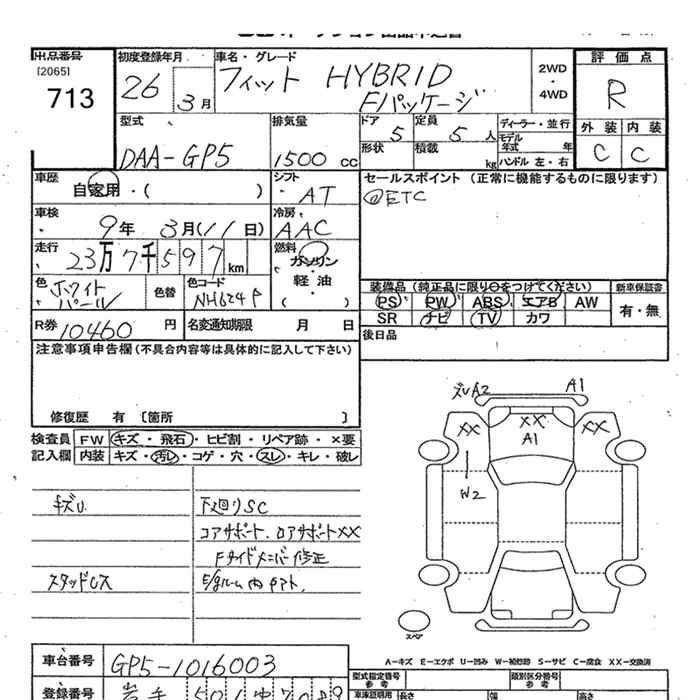 出品番号
[2065]
713
初度登録年月
26 3月
車名・グレード
フィット HYBRID
Fパッケージ
2WD
・
4WD
評価点
R
外装 内装
C C
型式
DAA-GP5
排気量
1500 cc
ドア
5
定員
5 人
ディーラー・並行
モデル
年式 年
形状
積載
kg
ハンドル 左・右
車歴
自家用・( )
シフト
AT
セールスポイント (正常に機能するものに限ります)
@ETC
車検
9年 3月(11日)
冷房
AAC
走行
23万7千597km
燃料
ガソリン
・
軽油
色
ホワイト
パール
色替
色コード
NH624P
装備品 (純正品に限り○をつけてください)
新車保証書
PS PW ABS エアB AW
SR ナビ TV カワ
有・無
R券 10460 円
名変通知期限 月 日
後日品
注意事項申告欄(不具合内容等は具体的に記入して下さい)
修復歴 有 〔箇所 〕
検査員
記入欄
FW キズ・飛石・ヒビ割・リペア跡・×要
内装 キズ・汚レ・コゲ・穴・スレ・キレ・破レ
キズU
下廻りSC
コアサポート、ロアサポートXX
Fサイドメンバー修正
スタッドレス
E/gルーム内
A2
A1
XX
XX
XX
A1
W2
スペア
A-キズ E-エクボ U-凹み W-補修跡 S-サビ C-腐食 XX-交換済
車台番号
GP5-1016003
型式指定番号
参考
類別区分番号
参考
登録番号
岩手 501
車庫証明用
長さ
幅
高さ